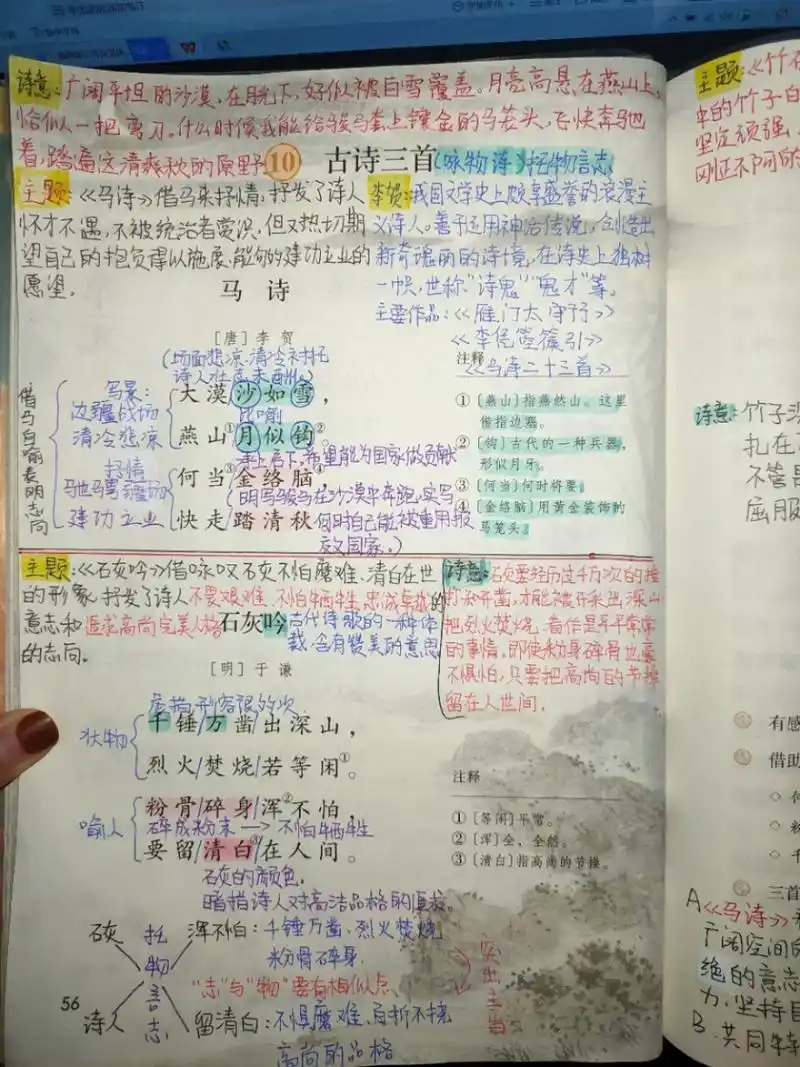 诗意:广阔平坦的沙漠,在月光下,好似被白雪覆盖。月亮高悬在燕山上,
恰似一把弯刀。什么时候我能给骏马套上镶金的马笼头,飞快奔驰
着,踏遍这清爽秋的原野。
10 古诗三首(咏物诗)托物言志
主题:《马诗》借马来抒情,抒发了诗人
怀才不遇,不被统治者赏识,但又热切期
望自己的抱负得以施展,能够的建功立业的
愿望。
李贺:我国文学史上颇享盛誉的浪漫主
义诗人。善于运用神话传说,创造出
新奇瑰丽的诗境,在诗史上独树
一帜,世称"诗鬼""鬼才"等。
主要作品:《雁门太守行》
《李凭箜篌引》
《马诗二十三首》
马 诗
[唐]李 贺
(场面悲凉、清冷衬托
诗人壮志未酬。)
借马自喻表明志向
写景:
边疆战场
清冷悲凉
大漠沙如雪,
比喻
燕山①月似钩②。
承上启下,希望能为国家做贡献
抒情
建功立业
何当③金络脑④,
(明写骏马在沙漠中奔跑,实写
快走踏清秋。
何时自己能被重用报
效国家。)
注释
①〔燕山〕指燕然山。这里
借指边塞。
②〔钩〕古代的一种兵器,
形似月牙。
③〔何当〕何时将要。
④〔金络脑〕用黄金装饰的
马笼头。
主题:《石灰吟》借咏叹石灰不怕磨难、清白在世
的形象,抒发了诗人不畏艰难、不怕牺牲、忠诚卓越的
意志和追求高尚完美人格
的志向。
石灰吟
古代诗歌的一种体
裁,含有赞美的意思
[明]于 谦
诗意:石灰要经历过千万次的捶
打和开凿,才能被开采出深山
把烈火焚烧,看作是平平常常
的事情。即使粉身碎骨也毫
不惧怕,只要把高尚的节操
留在人世间。
虚指,形容很多次
状物
千锤/万凿/出深山,
烈火/焚烧/若等闲①。
喻人
粉骨/碎身/浑②不怕,
碎成粉末→不怕牺牲
要留/清白③/在人间。
石灰的颜色。
暗指诗人对高洁品格的追求。
注释
①〔等闲〕平常。
②〔浑〕全,全然。
③〔清白〕指高尚的节操。
石灰 托物言志 浑不怕:千锤万凿、烈火焚烧
粉骨碎身
"志"与"物"要有相似点
诗人 留清白:不惧磨难、百折不挠
高尚的品格
突出主旨
56
主题:《竹石
中的竹子自
坚定顽强
刚正不阿的
诗意:竹子
扎在
不管是
屈服
有感
借助
三首
A《马诗》
广阔空间的
绝的意志
力、坚持自
B.共同特